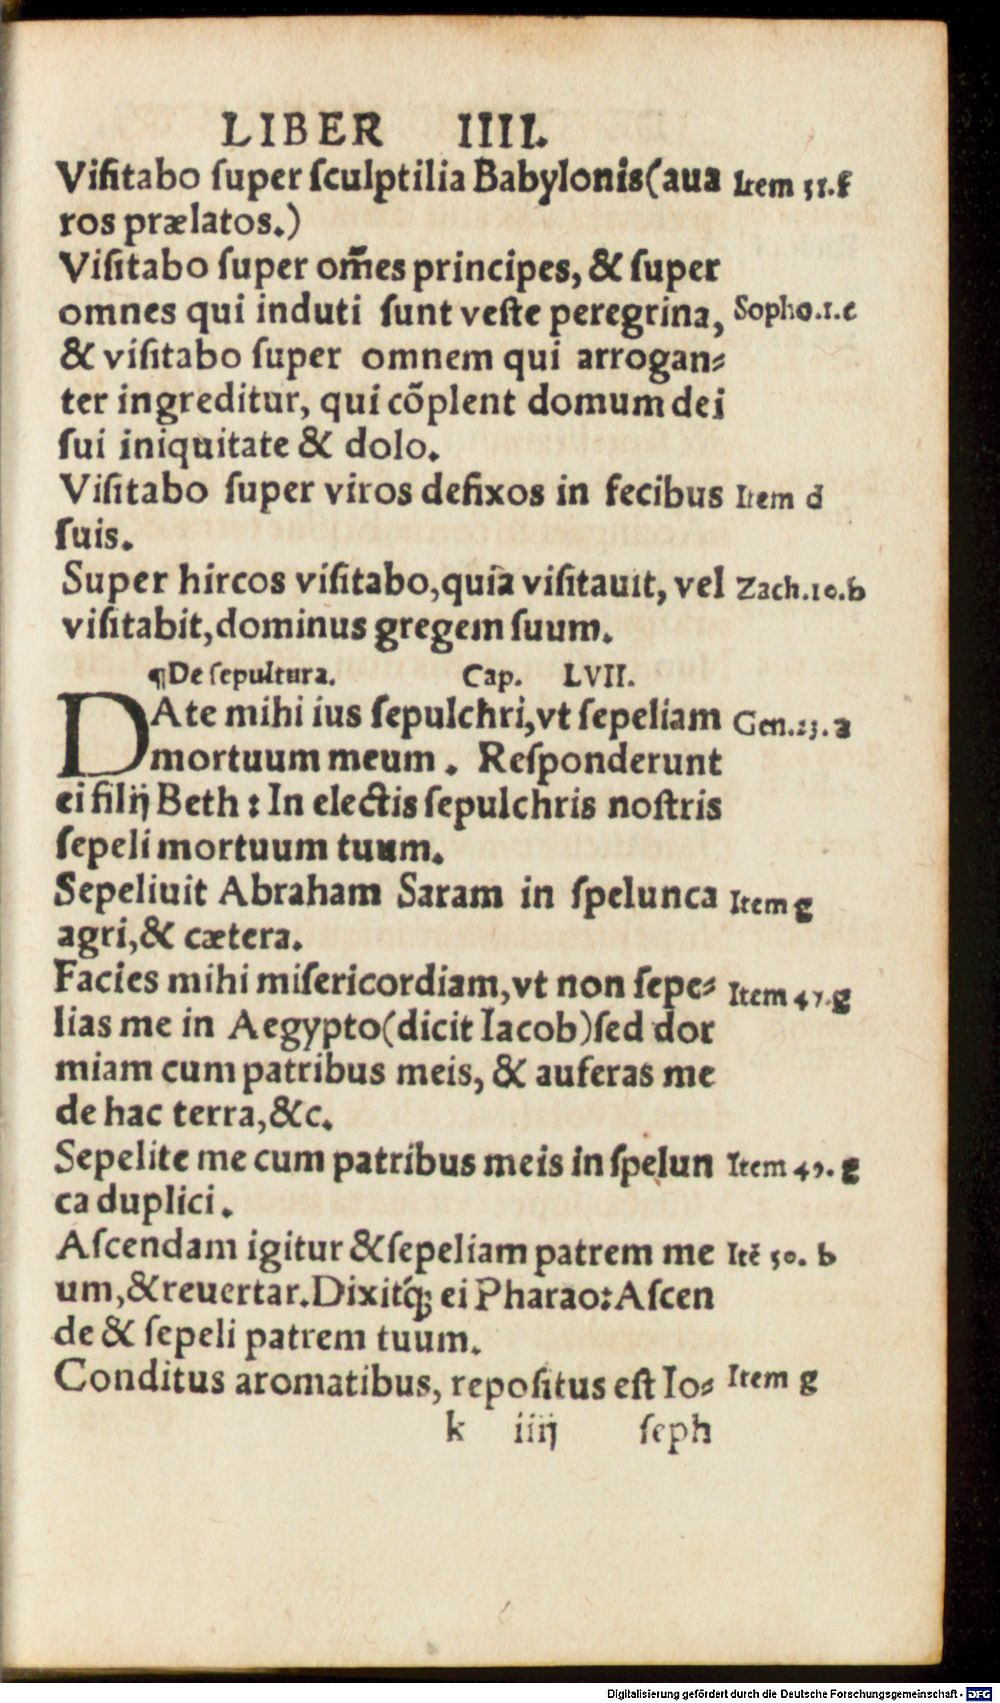 LIBER IIII.
Viſitabo ſuper ſculptilia Babylonis(aua Item 51.f
ros prælatos.)
Viſitabo ſuper om̃es principes, & ſuper
omnes qui induti ſunt veſte peregrina, Sopho.1.c
& viſitabo ſuper omnem qui arrogan⸗
ter ingreditur, qui cõplent domum dei
ſui iniquitate & dolo.
Viſitabo ſuper viros defixos in fecibus Item d
ſuis.
Super hircos viſitabo,quia viſitauit, vel Zach.10.b
viſitabit,dominus gregem ſuum.
¶De ſepultura. Cap. LVII.
DAte mihi ius ſepulchri,vt ſepeliam Gen.23.a
mortuum meum. Reſponderunt
ei filij Beth: In electis ſepulchris noſtris
ſepeli mortuum tuum.
Sepeliuit Abraham Saram in ſpelunca Item g
agri,& cætera.
Facies mihi miſericordiam,vt non ſepe⸗ Item 47.g
lias me in Aegypto(dicit Iacob)ſed dor
miam cum patribus meis, & auferas me
de hac terra,&c.
Sepelite me cum patribus meis in ſpelun Item 49.g
ca duplici.
Aſcendam igitur &ſepeliam patrem me Itē 50. b
um,&reuertar.Dixitq́; ei Pharao:Aſcen
de & ſepeli patrem tuum.
Conditus aromatibus, repoſitus eſt Io⸗ Item g
k iiij ſeph
Digitalisierung gefördert durch die Deutsche Forschungsgemeinschaft - DFG